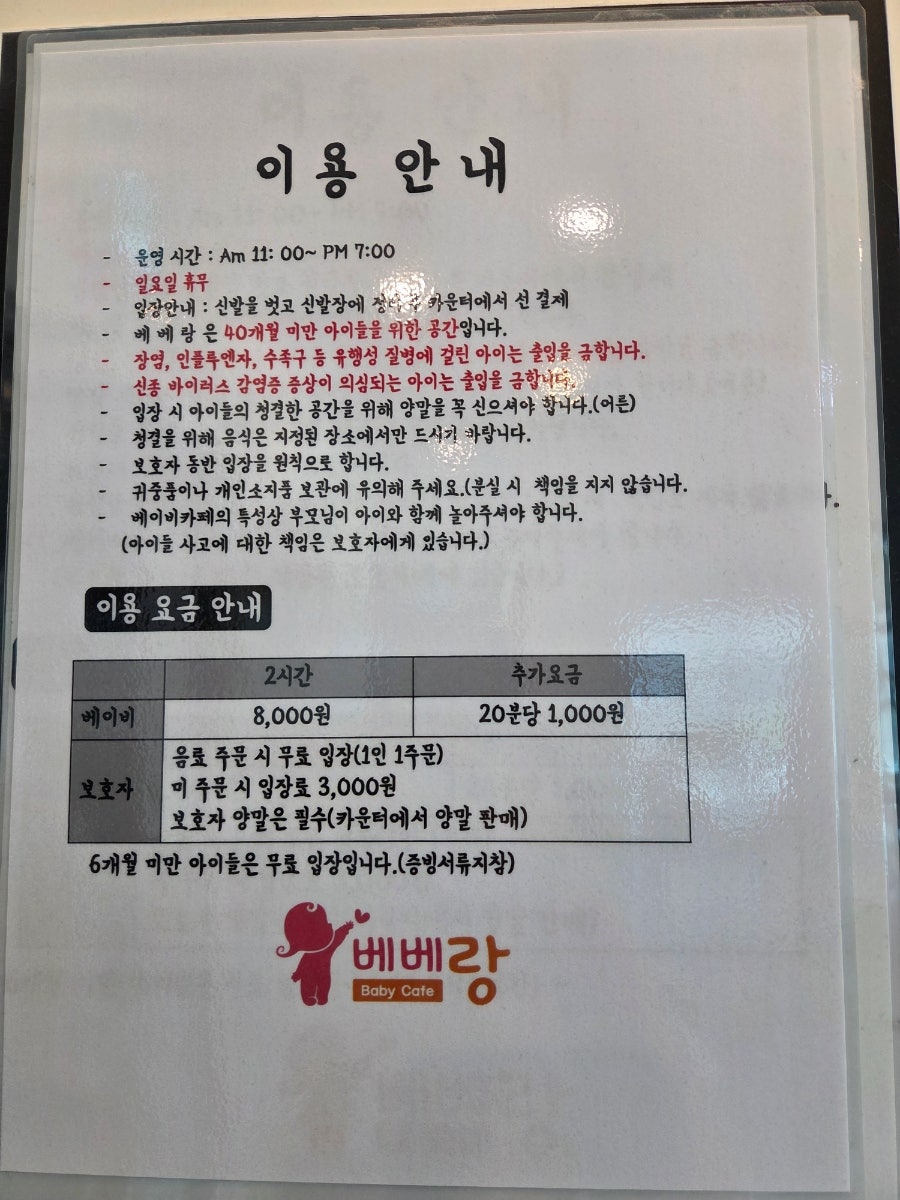 이용 안내
- 운영 시간 : Am 11: 00~ PM 7:00
- 일요일 휴무
- 입장안내 : 신발을 벗고 신발장에 카운터에서 선 결제
- 베 베 랑 은 40개월 미만 아이들을 위한 공간입니다.
- 장염, 인플루엔자, 수족구 등 유행성 질병에 걸린 아이는 출입을 금합니다.
- 신종 바이러스 감염증 증상이 의심되는 아이는 출입을 금합니다.
- 입장 시 아이들의 청결한 공간을 위해 양말을 꼭 신으셔야 합니다.(어른)
- 청결을 위해 음식은 지정된 장소에서만 드시기 바랍니다.
- 보호자 동반 입장을 원칙으로 합니다.
- 귀중품이나 개인소지품 보관에 유의해 주세요.(분실 시 책임을 지지 않습니다.
- 베이비카페의 특성상 부모님이 아이와 함께 놀아주셔야 합니다.
(아이들 사고에 대한 책임은 보호자에게 있습니다.)
이용 요금 안내
2시간 추가요금
베이비 8,000원 20분당 1,000원
음료 주문 시 무료 입장(1인 1주문)
보호자 미 주문 시 입장료 3,000원
보호자 양말은 필수(카운터에서 양말 판매)
6개월 미만 아이들은 무료 입장입니다.(증빙서류지참)
베베랑
Baby Cafe